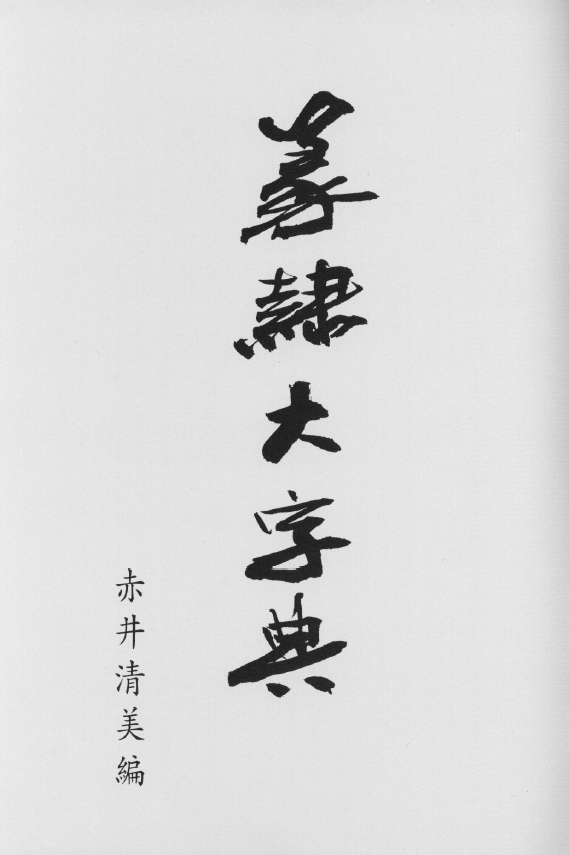 篆隷大字典
赤井清美編